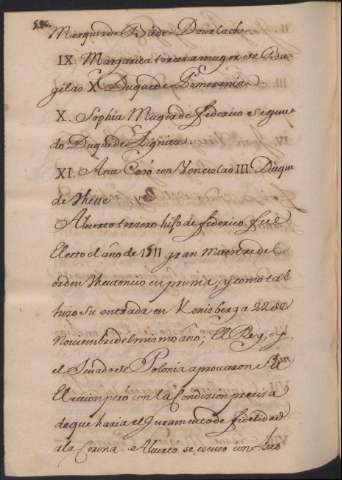 Marques de Bade Dourlach.
IX. Margarita tercera muger de Bu-
gislao X Duque de Pomerania.
X. Sophia Muger de Federico segun-
do Duque de Lignits.
XI. Ana Casó con Venceslao III. Duque
de These
Alverto tercero hijo de federico fue
Electo el año de 1511 gran Maestre del
orden theutonico en prusia, y como tal
huzo su entrada en Konisberg a 22 de
Noviembre del mismo año; El Rey, y
el Senado de Polonia aprovaron su
Eleccion pero con la Condicion precisa
de que haria el Juramento de fidelidad
a la Corona. Alverto se